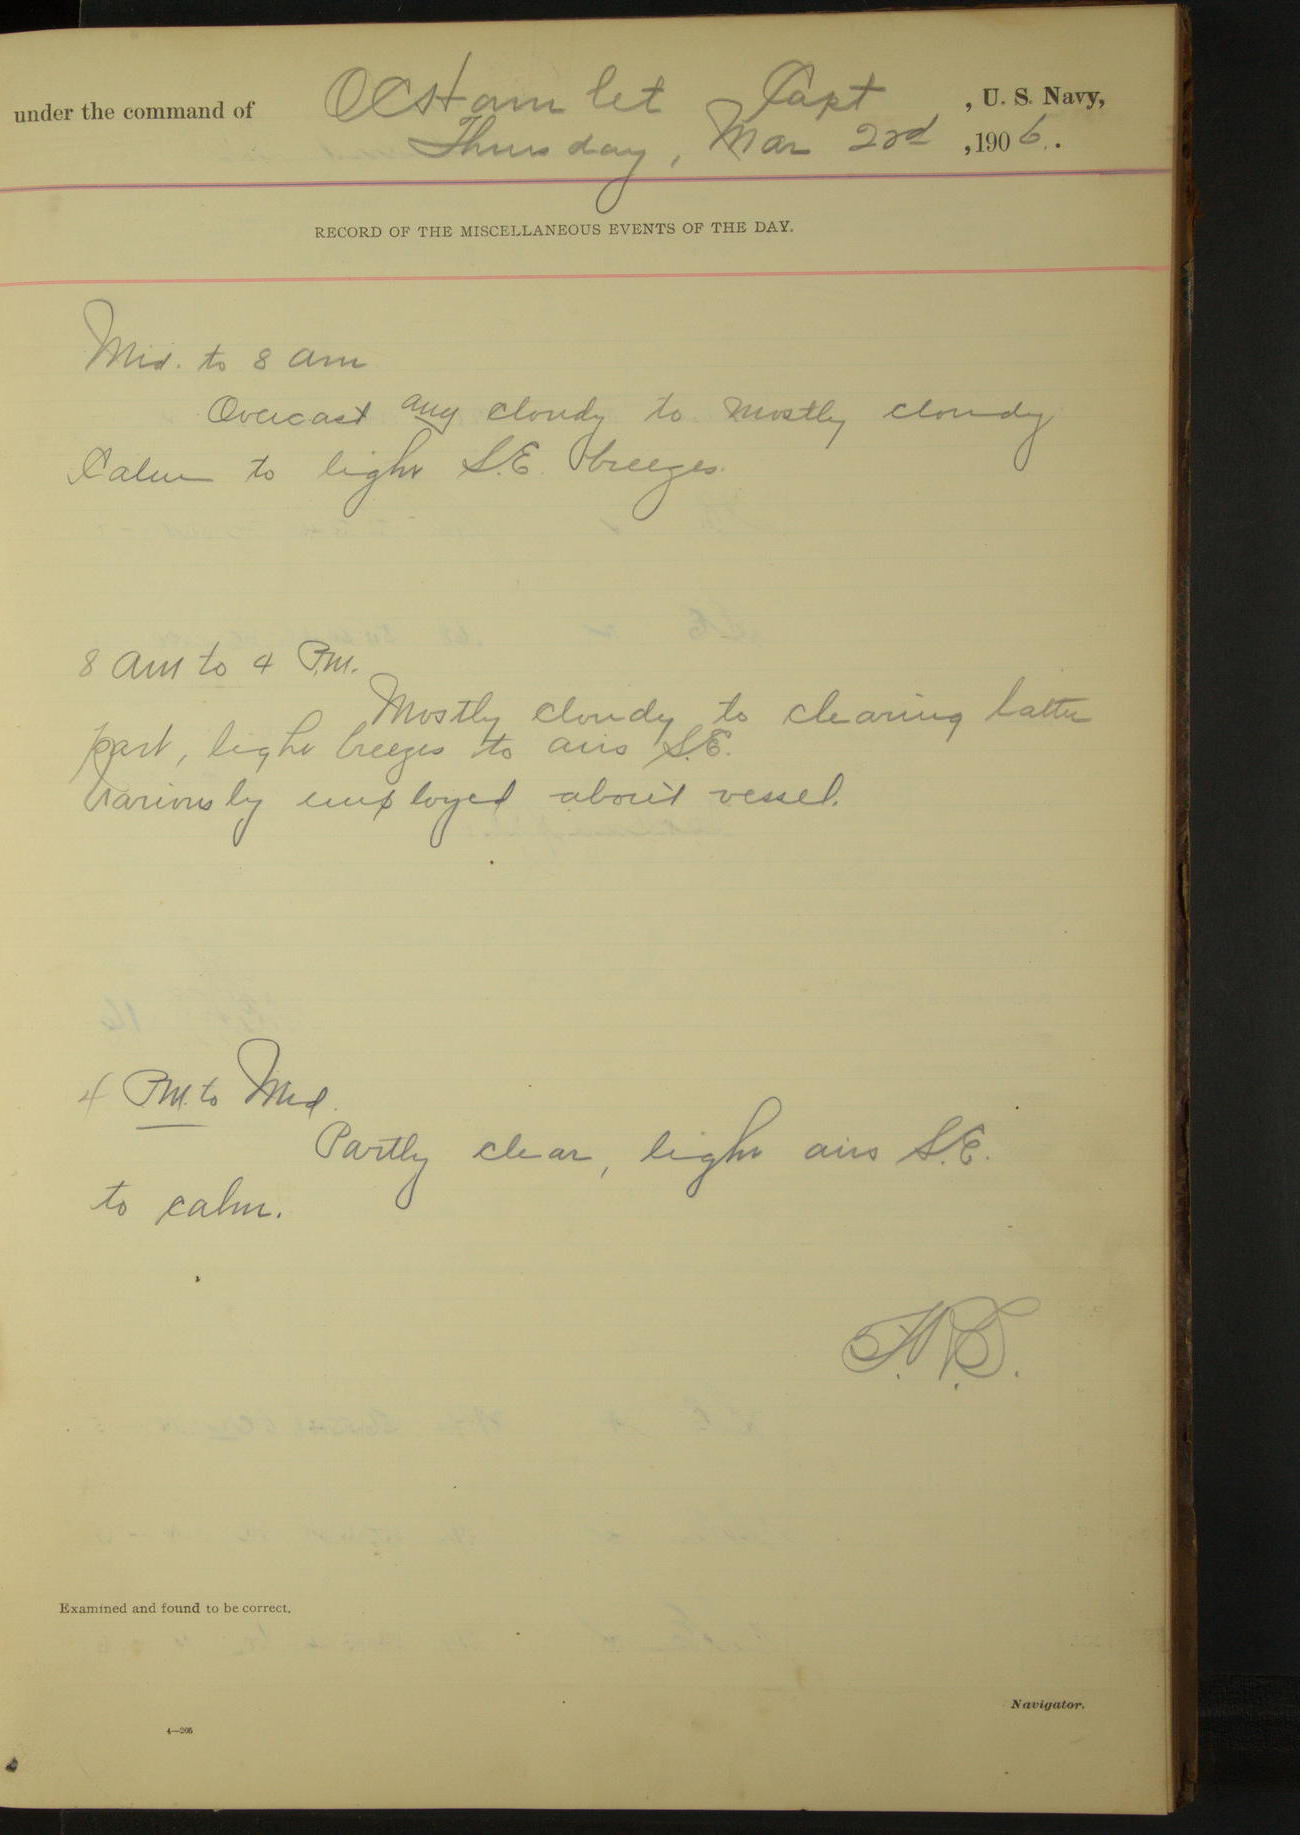 under the command of O C Hamlet Capt , U. S. Navy,
Thursday, Mar 22d , 1906.
RECORD OF THE MISCELLANEOUS EVENTS OF THE DAY.
Mid. to 8 am
Overcast and cloudy to mostly cloudy
Calm to light S.E. breezes.
8 am to 4 P.M.
Mostly cloudy to clearing latter
part, light breezes to airs S.E.
Variously employed about vessel.
4 P.M. to Mid.
Partly clear, light airs S.E.
to calm.
Examined and found to be correct,
Navigator.
4—205